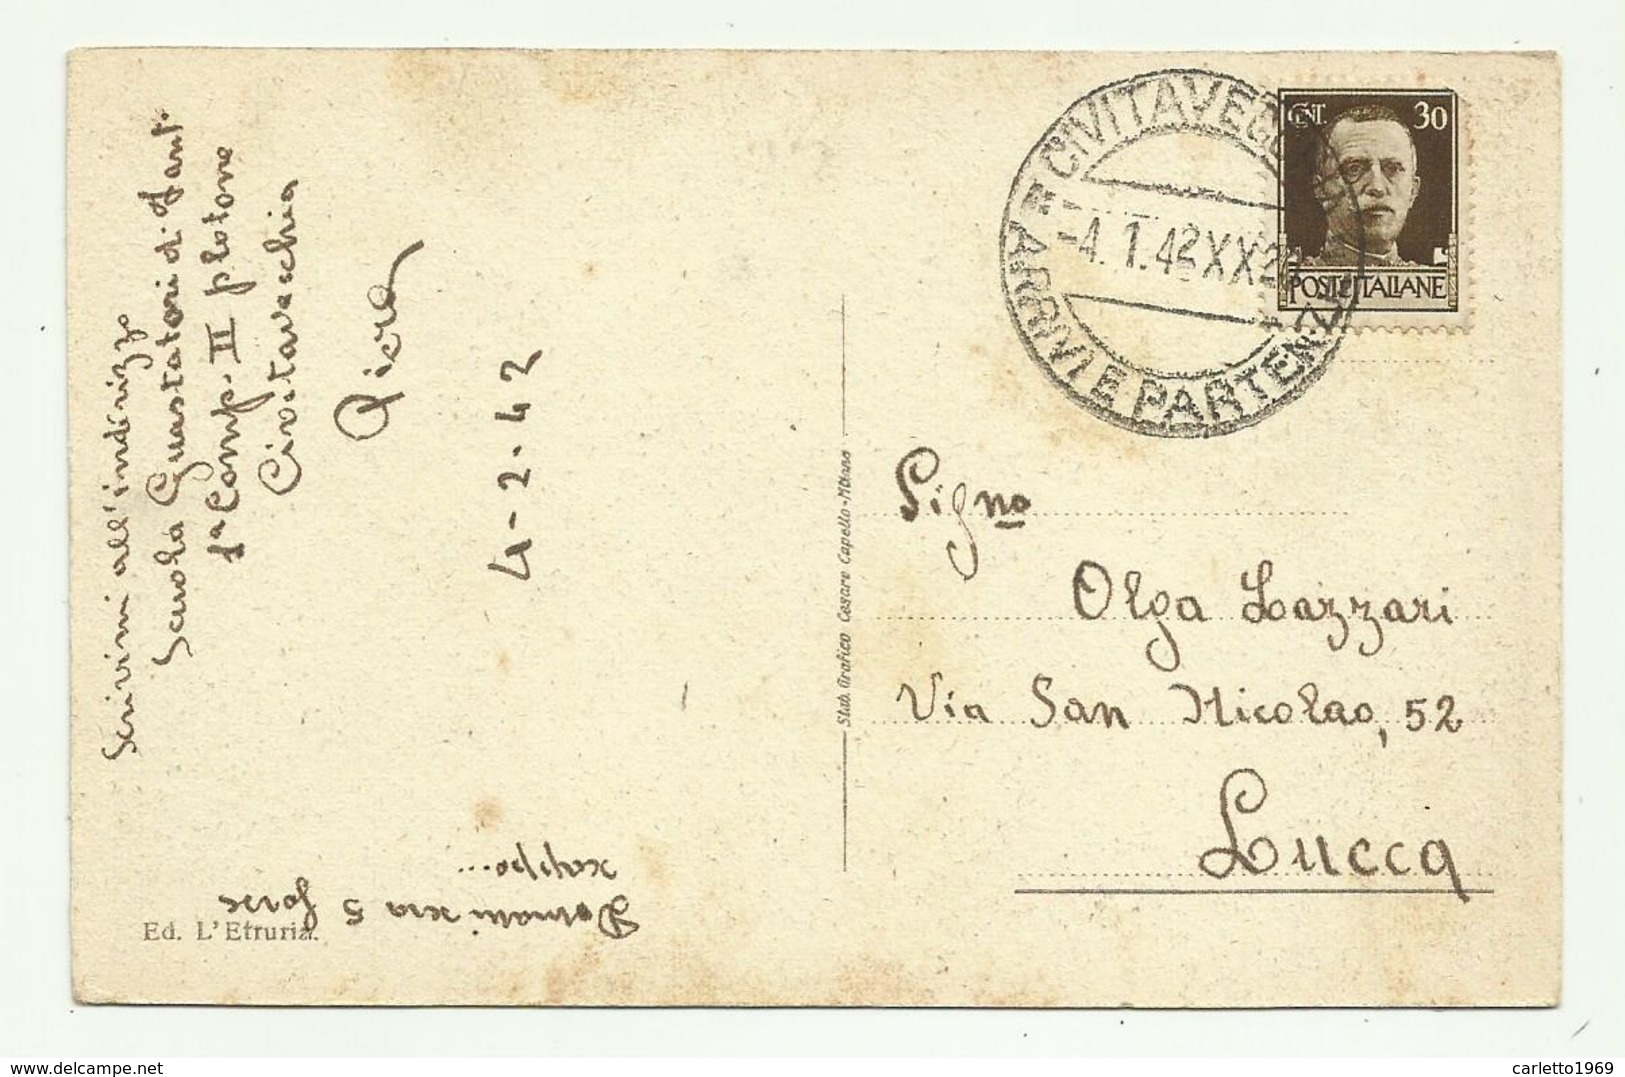 Scrivimi all'indirizzo
Scuola Guastatori d. Fant.
1ª Comp. II plotone
Civitavecchia
Piero
4-2-42
Domani sera 5 forse
scappo...
Ed. L'Etruria.
Stab. Grafico Cesare Capello - Milano
CIVITAVECC
ARRIVI E PARTENZ
-4.1.42 XX
CENT. 30
POSTE ITALIANE
Sig.na
Olga Lazzari
Via San Nicolao, 52
Lucca
www.delcampe.net
carletto1969